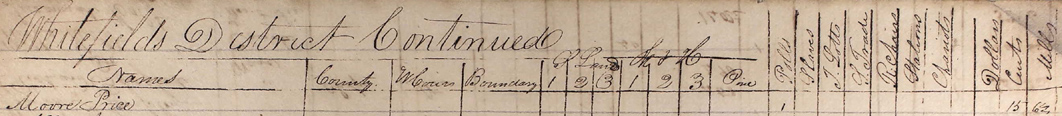 Whitefields District Continued
Names County W Cours Boundary 1 2 3 1 2 3 Pine Polls Slaves T Lotts S Trade Stations Chariots Dollers Cents Mills
Moore Price 1 15 62